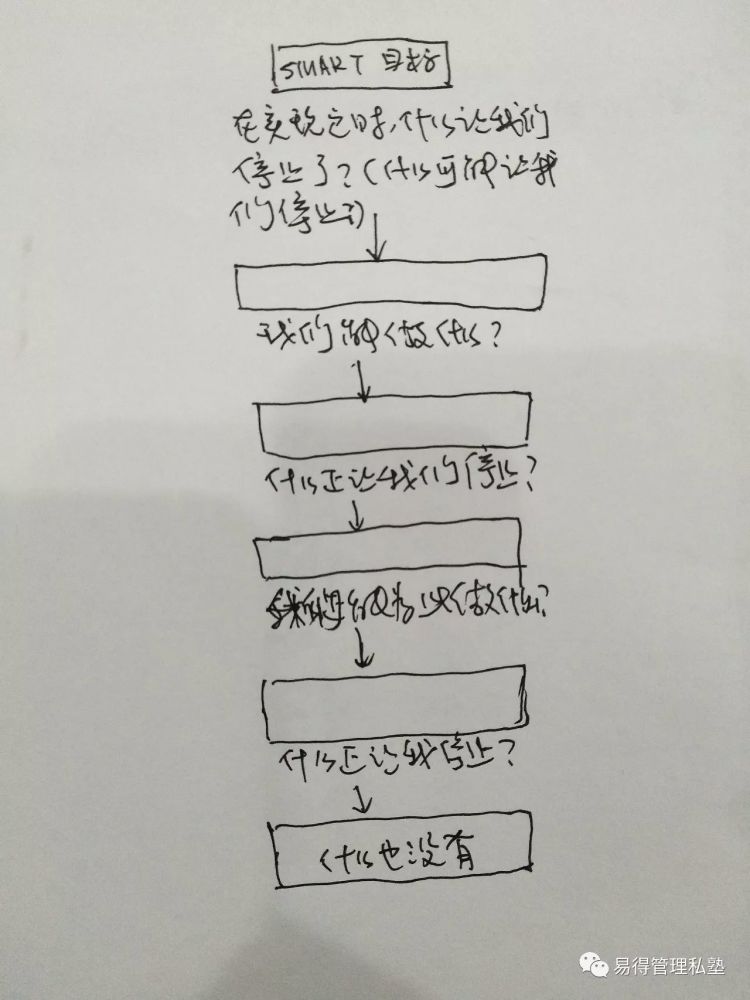 SMART 目标
在实现它时,什么让我们
停止了?(什么可能让我
们停止?)
我们能做什么?
什么正让我们停止?
能为此做什么?
什么正让我停止?
什么也没有
易得管理私塾